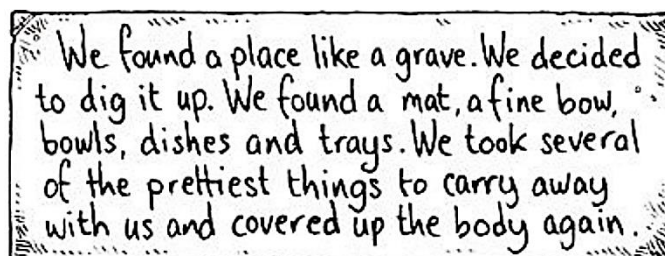 We found a place like a grave. We decided
to dig it up. We found a mat, a fine bow,
bowls, dishes and trays. We took several
of the prettiest things to carry away
with us and covered up the body again.